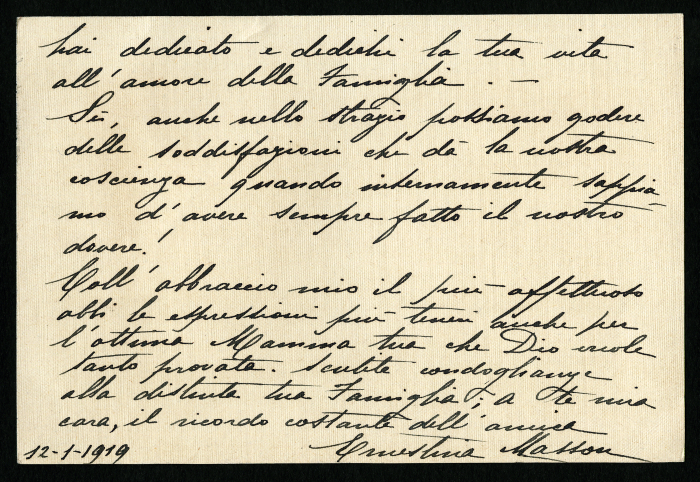 hai dedicato e dedichi la tua vita
all'amore della Famiglia. —
Sì, anche nello strazio possiamo godere
delle soddisfazioni che dà la nostra
coscienza quando internamente sappia-
mo d'avere sempre fatto il nostro
dovere!
Coll'abbraccio mio il più affettuoso
abbi le espressioni più teneri anche per
l'ottima Mamma tua che Dio vuole
tanto provata. Sentite condoglianze
alla distinta tua Famiglia; a te mia
cara, il ricordo costante dell'amica
Ernestina Masson
12-1-1919